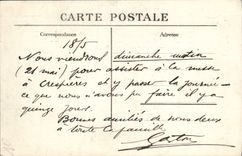 CARTE POSTALE
Correspondance
Adresse
18/5
Nous viendrons dimanche matin
(21 mai) pour assister à la messe
à Crespières et y passer la journée —
ce que nous n'avons pu faire il y a
quinze jours.
Bonnes amitiés de nous deux
à toute la famille
Gaston